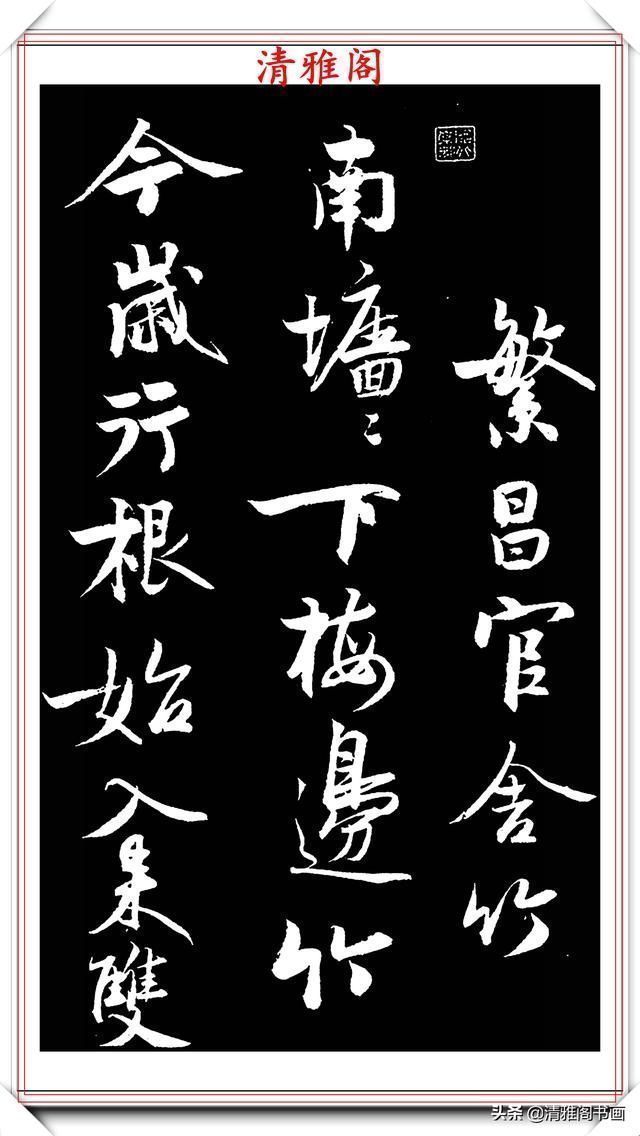 清雅阁
繁昌官舍竹
南墻〻下梅邊竹
今歲行根始入来雙
头条 @清雅阁书画